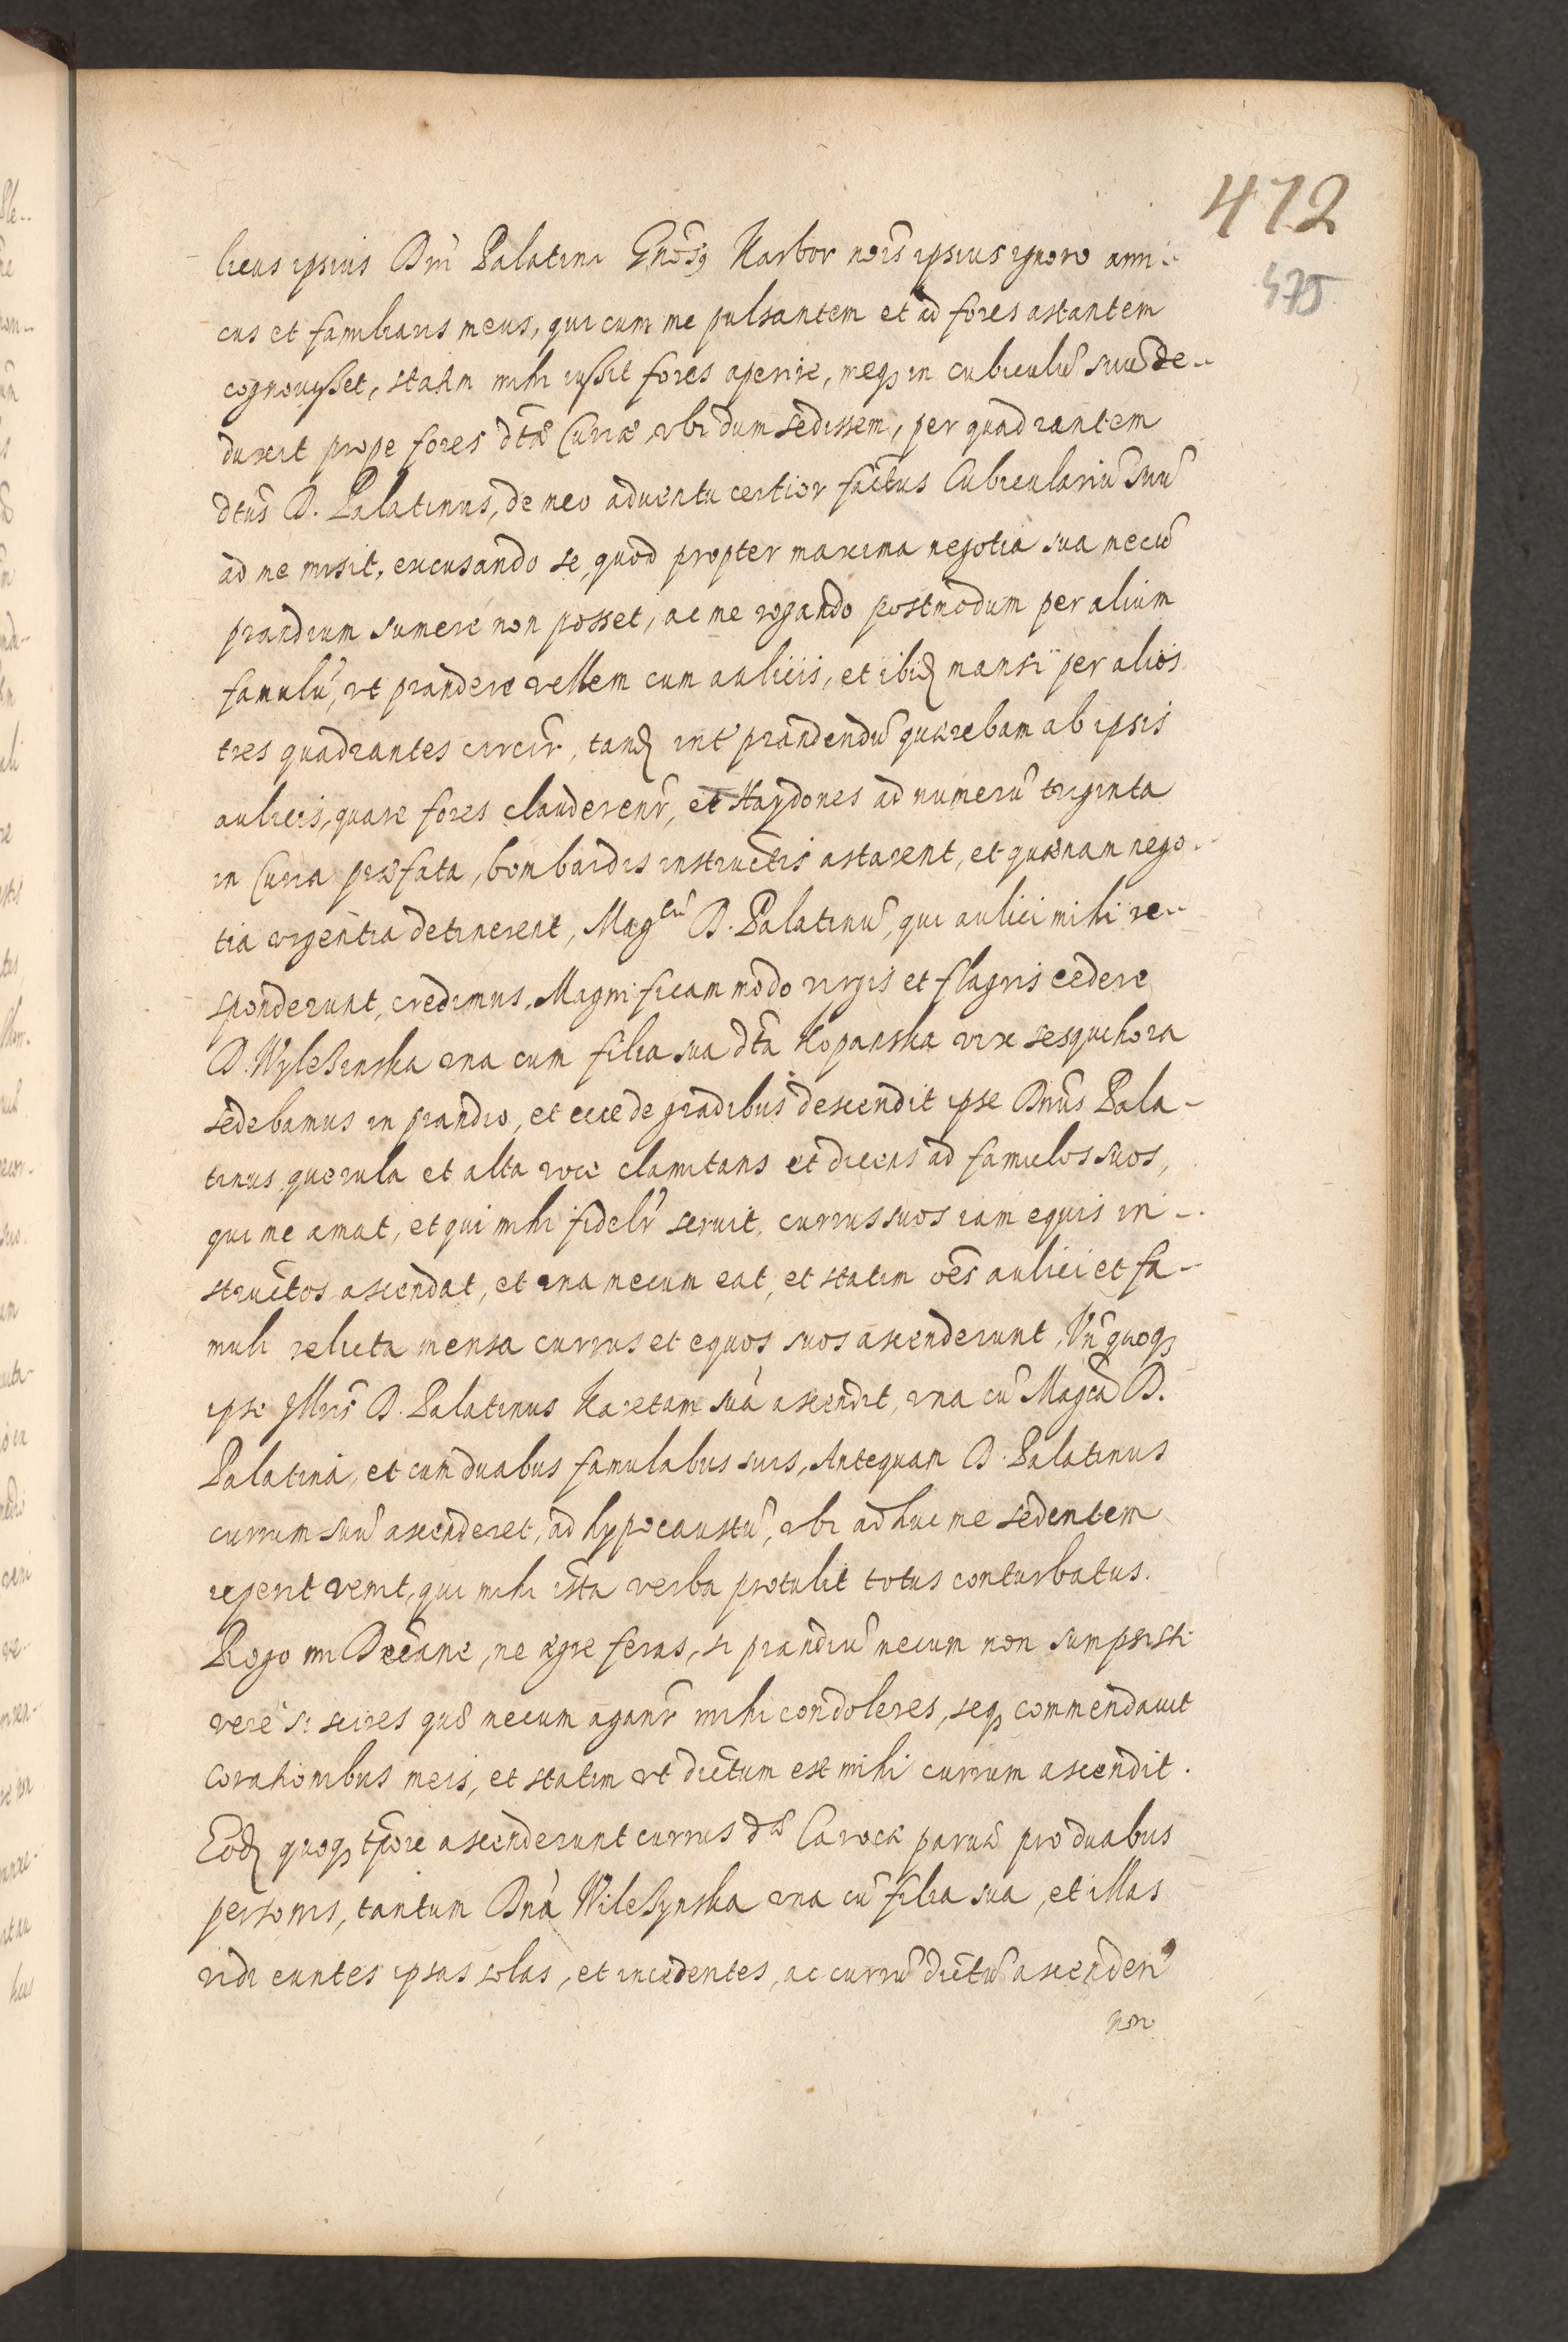 472
475
licus ipsius Dni Palatini Gnosq Harbor nois ipsius ignoro ami-
cus et familiaris meus, qui cum me pulsantem et ad fores astantem
cognouisset, statim mihi iussit fores aperire, meqz in cubiculū suū de-
duxit prope fores dtæ Curiæ, vbi dum sedissem, per quadrantem
dtus D. Palatinus, de meo aduentu certior factus Cubiculariū suū
ad me misit, excusando se, quod propter maxima negotia sua mecū
prandium sumere non posset, ac me rogando postmodum per alium
famulū, vt prandere vellem cum aulicis, et ibid mansi per alios
tres quadrantes circir, tand int prandendū quærebam ab ipsis
aulicis, quare fores clauderenr, et Haydones ad numerū triginta
in Curia præfata, bombardis instructis astarent, et quænam nego-
tia vrgentia detinerent, Magcū D. Palatinū, qui aulici mihi re-
sponderunt, credimus, Magnificam modo virgis et flagris cedere
D. Wylesinska vna cum filia sua dta Kopanska vix sesquihora
sedebamus in prandio, et ecce de gradibus descendit ipse Dnus Pala-
tinus querula et alta voce clamitans et dicens ad famulos suos,
qui me amat, et qui mihi fidelr seruit, currus suos iam equis in-
structos ascendat, et vna mecum eat, et statim oēs aulici et fa-
muli relicta mensa currus et equos suos ascenderunt, Vn quoqz
ipse Illris D. Palatinus Karetam suā ascendit, vna cū Magca D.
Palatina, et cum duabus famulabus suis, Antequam D. Palatinus
currum suū ascenderet, ad hypocaustū, vbi adhuc me sedentem
reperit venit, qui mihi ista verba protulit totus conturbatus.
Rogo mi Decane, ne ægre feras, si prandiū mecum non sumpsisti
vere si scires quæ mecum aganr mihi condoleres, seqz commendauit
orationibus meis, et statim vt dictum est mihi currum ascendit.
Eod quoqz tpore ascenderunt currus d Carock paruū pro duabus
personis, tantum Dna Wilesynska vna cū filia sua, et illas
vidi euntes ipsas solas, et incedentes, ac currū dictū ascender
non